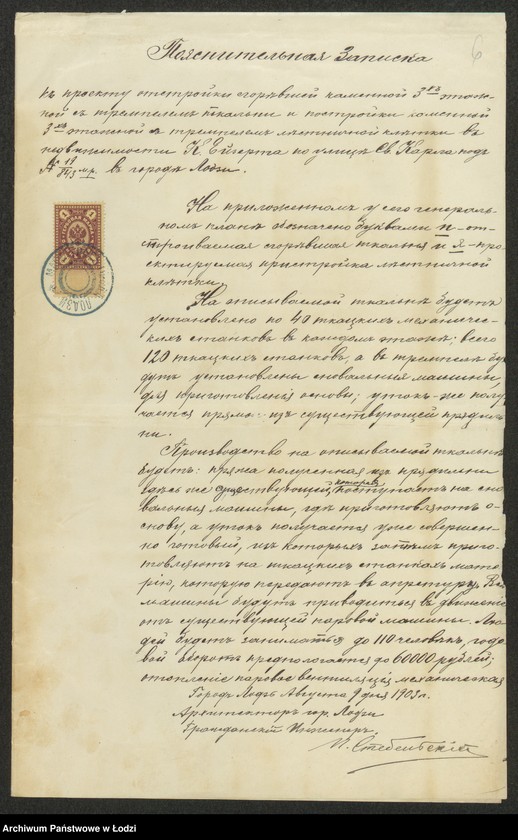 6
Пояснительная Записка
къ проекту отстройки сгорѣвшей каменной 3хъ этаж-
ной съ тремпелемъ ткальни и постройки каменной
3хъ этажной съ тремпелемъ лѣстничной клѣтки въ
недвижимости К. Ейзерта по улицѣ Св. Карла подъ
№ 19/843 мр. въ городѣ Лодзи.
На приложенномъ у сего генераль-
номъ планѣ обозначено буквами п-от-
строиваемая сгорѣвшая ткальня и я-про-
ектируемая пристройка лѣстничной
клѣтки.
На описываемой ткальнѣ будетъ
установлено по 40 ткацкихъ механичес-
кихъ станковъ въ каждомъ этажѣ; всего
120 ткацкихъ станковъ, а въ тремпелѣ бу-
дутъ установлены сновальныя машины,
для приготовленія основы; утокъ же полу-
чается прямо изъ существующей прядиль-
ни.
Производство на описываемой ткальнѣ
будетъ: пряжа полученная изъ прядильни
здѣсь же существующей, которая поступаетъ на сно-
вальныя машины, гдѣ приготовляютъ о-
снову, а утокъ получается уже совершен-
но готовый, изъ которыхъ затѣмъ приго-
товляютъ на ткацкихъ станкахъ мате-
рію, которую передаютъ въ апретуру. Всѣ
машины будутъ приводиться въ движеніе
отъ существующей паровой машины. Лю-
дей будетъ заниматься до 110 человѣкъ, годо-
вой оборотъ предпологается до 60000 рублей;
отопленіе паровое вентиляція механическая
Городъ Лодзь Августа 9 дня 1903 г.
Архитекторъ гор. Лодзи
Гражданскій Инженеръ
П. Стебельскій
Archiwum Państwowe w Łodzi